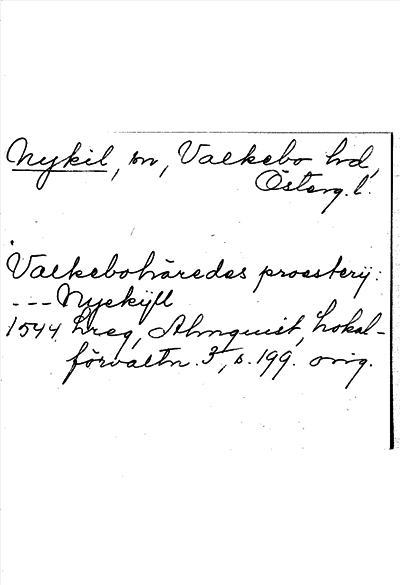 Nykil, sn, Valkebo hd,
Österg. l.
Valkebohäredes proesterij:
--- Nyekÿll
1544 Lreg, Almquist, Lokal-
förvaltn. 3, s. 199. orig.